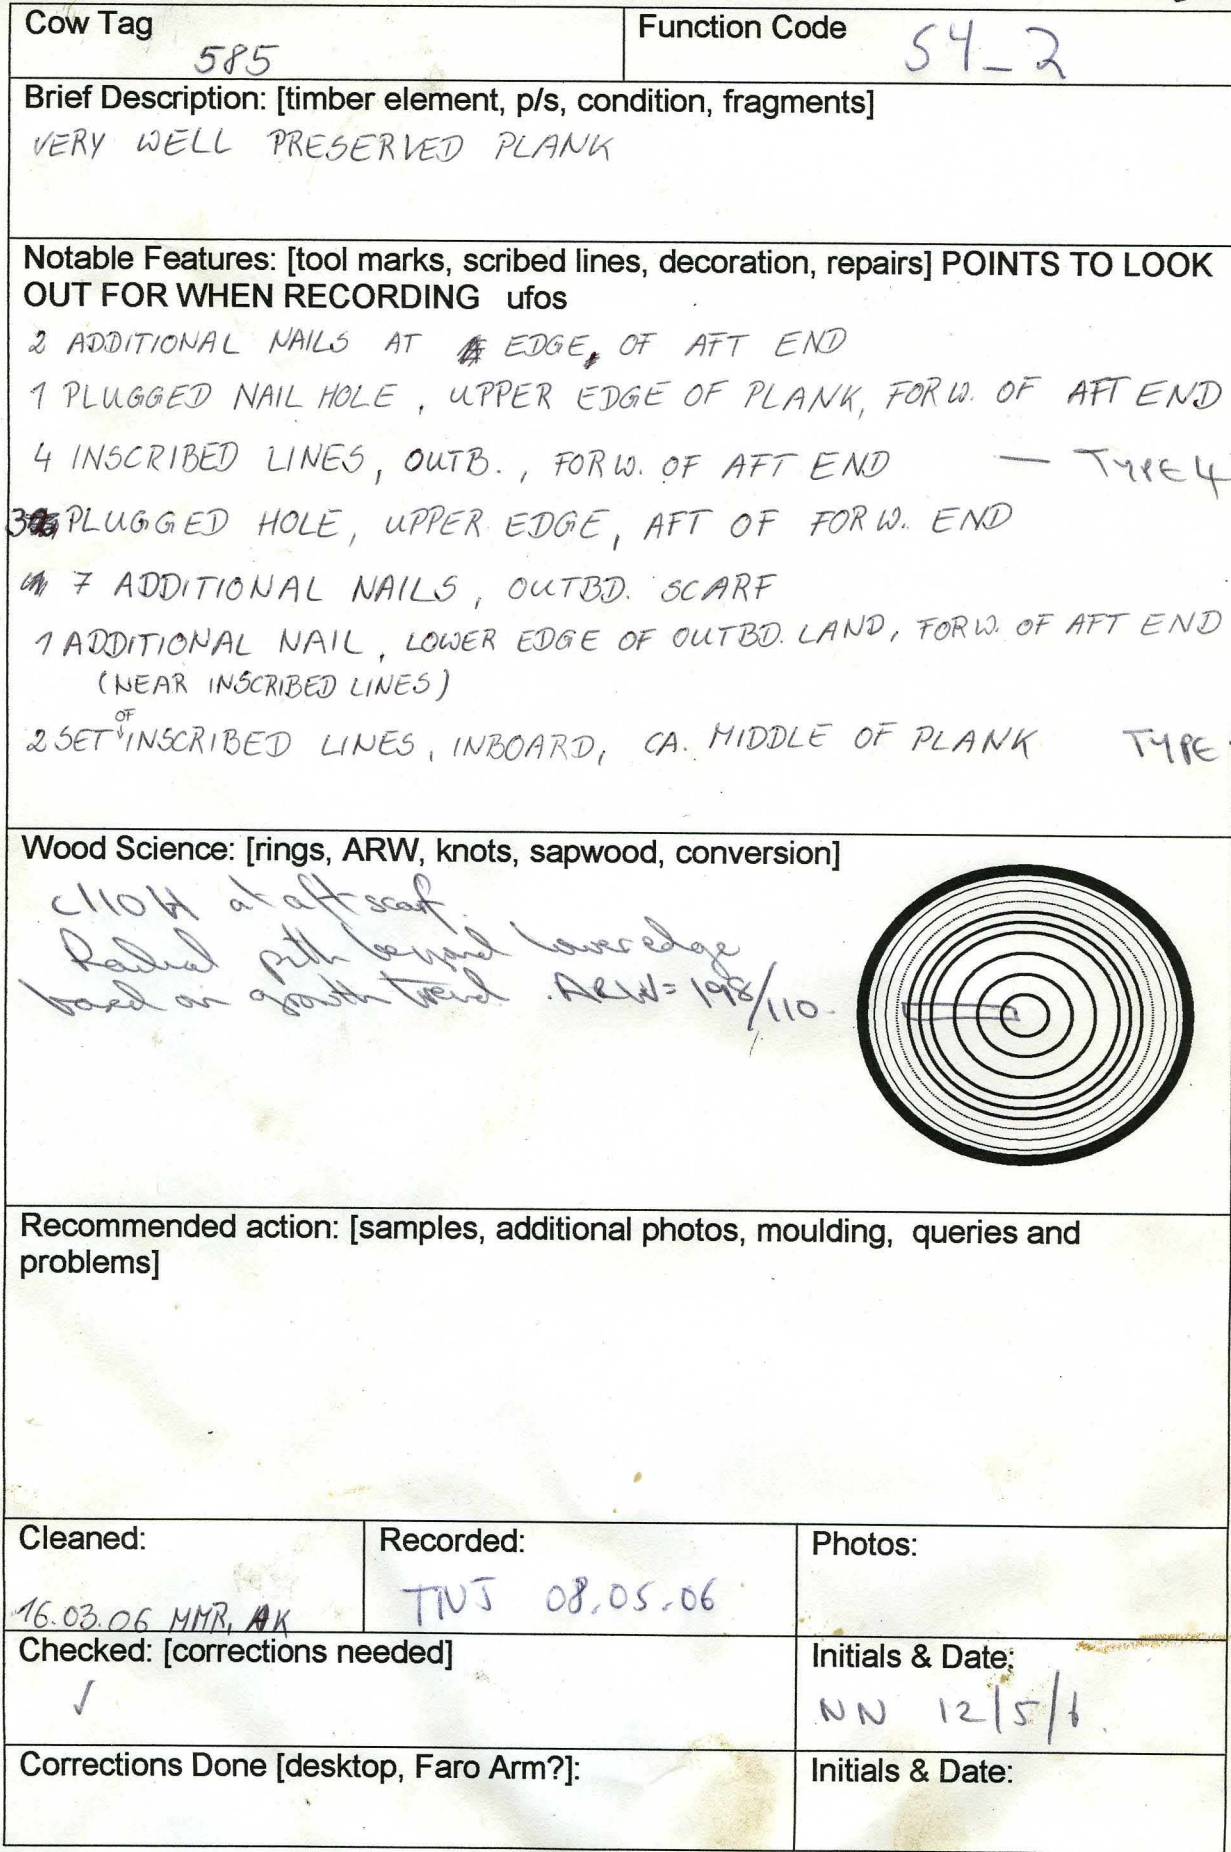 Cow Tag
585
Function Code
S4_2
Brief Description: [timber element, p/s, condition, fragments]
VERY WELL PRESERVED PLANK
Notable Features: [tool marks, scribed lines, decoration, repairs] POINTS TO LOOK
OUT FOR WHEN RECORDING ufos
2 ADDITIONAL NAILS AT EDGE OF AFT END
1 PLUGGED NAIL HOLE, UPPER EDGE OF PLANK, FORW. OF AFT END
4 INSCRIBED LINES, OUTB., FORW. OF AFT END — TYPE 4
3 PLUGGED HOLE, UPPER EDGE, AFT OF FORW. END
7 ADDITIONAL NAILS, OUTBD. SCARF
1 ADDITIONAL NAIL, LOWER EDGE OF OUTBD. LAND, FORW. OF AFT END
(NEAR INSCRIBED LINES)
2 SET OF INSCRIBED LINES, INBOARD, CA. MIDDLE OF PLANK TYPE
Wood Science: [rings, ARW, knots, sapwood, conversion]
c110H at aft scarf.
Radial pith beyond lower edge
based on growth trend. ARW= 198/110.
Recommended action: [samples, additional photos, moulding, queries and
problems]
Cleaned:
16.03.06 MMR, AK
Recorded:
TNJ 08.05.06
Photos:
Checked: [corrections needed]
✓
Initials & Date:
NN 12/5/6.
Corrections Done [desktop, Faro Arm?]:
Initials & Date: